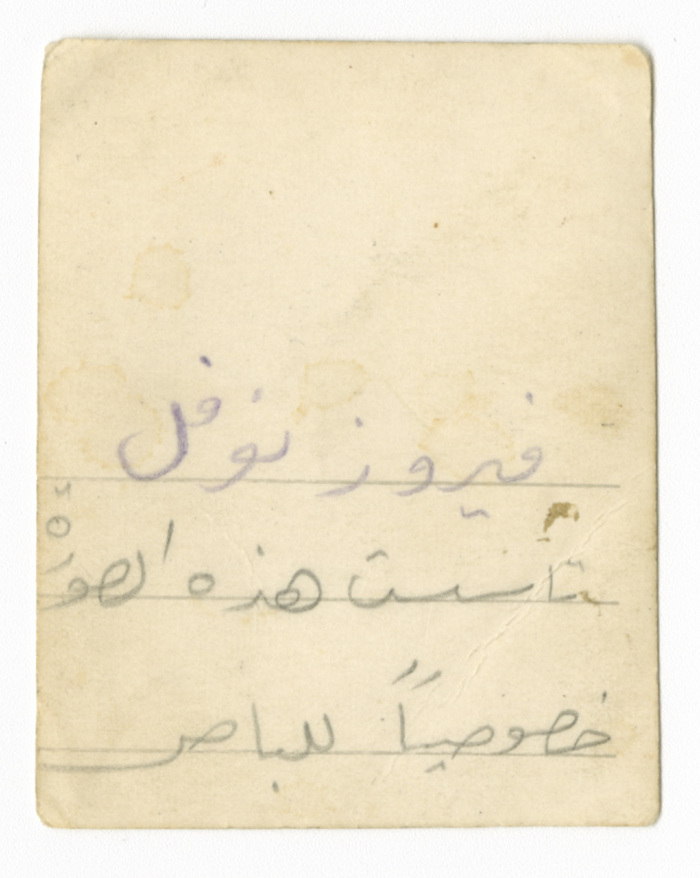 فيروز نوفل
تأسست هذه الصورة
خصوصياً للباص